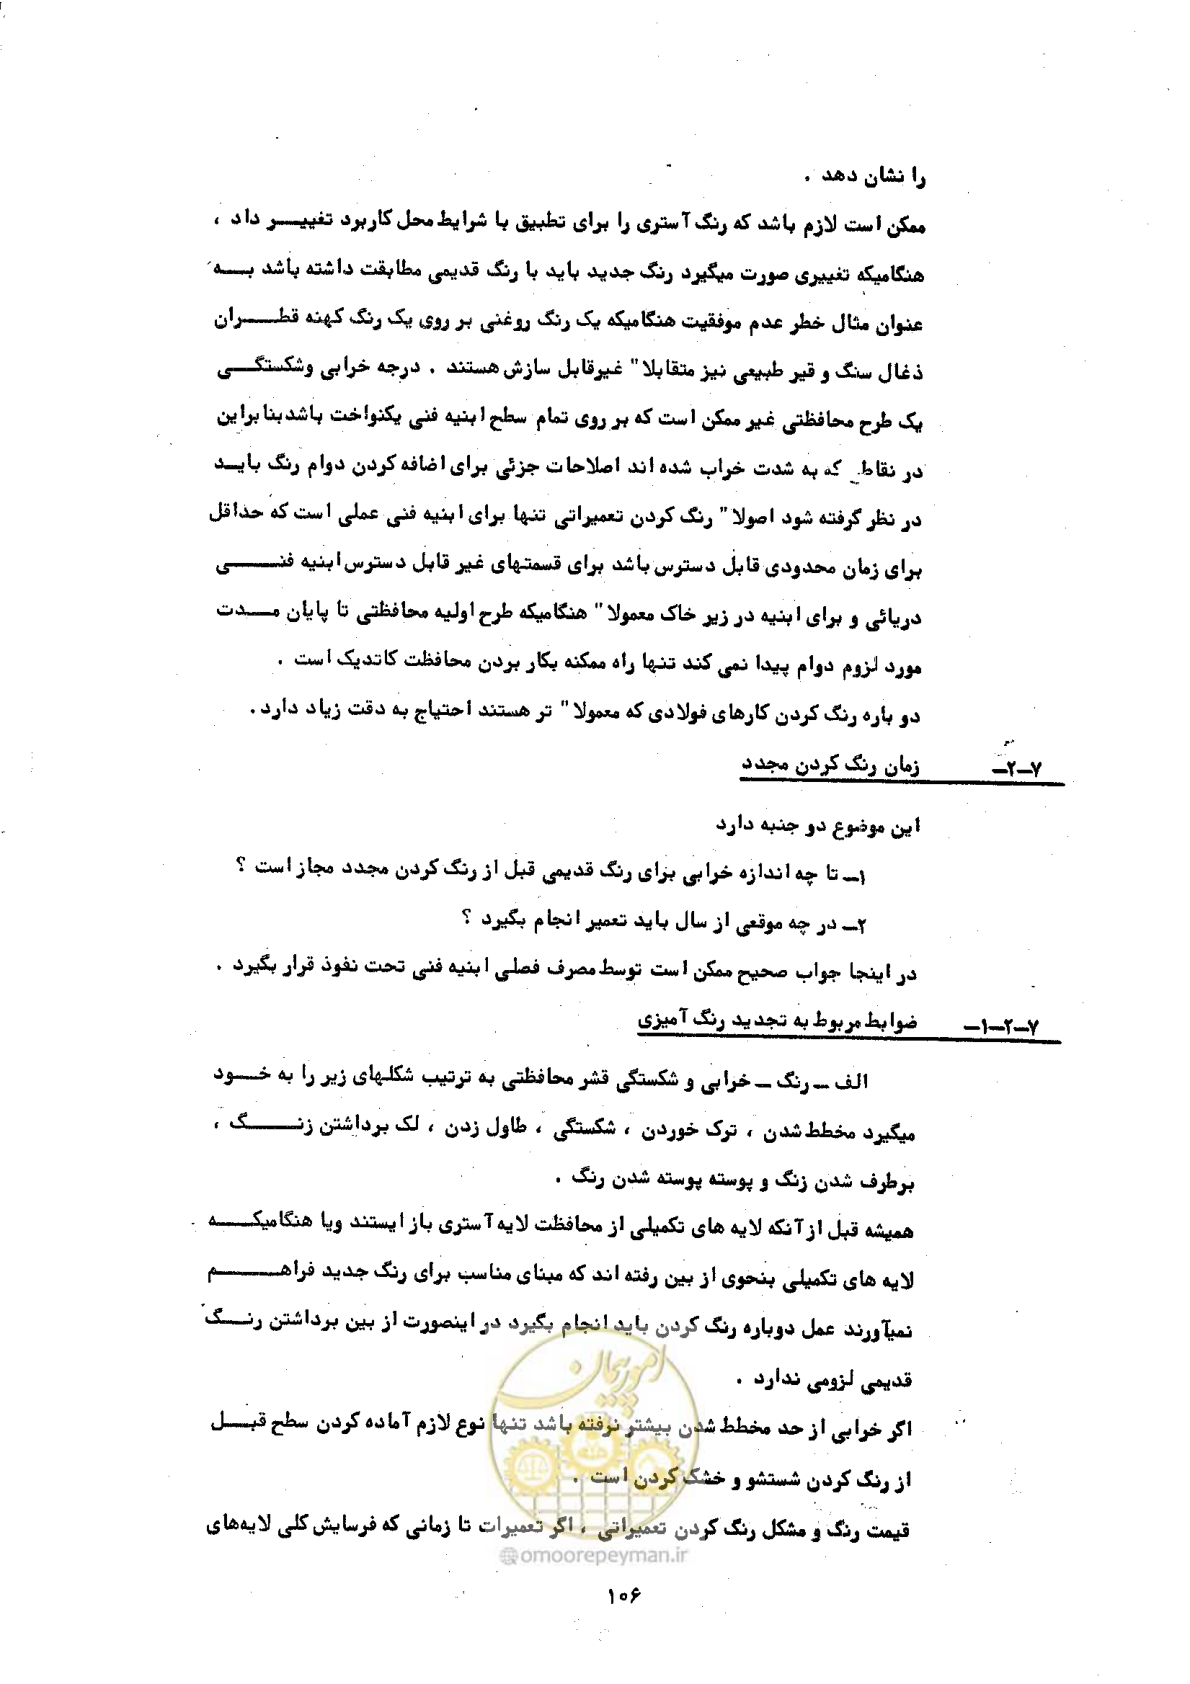 را نشان دهد .
ممکن است لازم باشد که رنگ آستری را برای تطبیق با شرایط محل کاربرد تغییر داد ،
هنگامیکه تغییری صورت میگیرد رنگ جدید باید با رنگ قدیمی مطابقت داشته باشد به
عنوان مثال خطر عدم موفقیت هنگامیکه یک رنگ روغنی بر روی یک رنگ کهنه قطران
ذغال سنگ و قیر طبیعی نیز متقابلا" غیرقابل سازش هستند . درجه خرابی وشکستگی
یک طرح محافظتی غیر ممکن است که بر روی تمام سطح ابنیه فنی یکنواخت باشد بنابراین
در نقاط که به شدت خراب شده اند اصلاحات جزئی برای اضافه کردن دوام رنگ باید
در نظر گرفته شود اصولا" رنگ کردن تعمیراتی تنها برای ابنیه فنی عملی است که حداقل
برای زمان محدودی قابل دسترس باشد برای قسمتهای غیر قابل دسترس ابنیه فنی
دریائی و برای ابنیه در زیر خاک معمولا" هنگامیکه طرح اولیه محافظتی تا پایان مدت
مورد لزوم دوام پیدا نمی کند تنها راه ممکنه بکار بردن محافظت کاتدیک است .
دو باره رنگ کردن کارهای فولادی که معمولا" تر هستند احتیاج به دقت زیاد دارد .
۷-۲- زمان رنگ کردن مجدد
این موضوع دو جنبه دارد
۱- تا چه اندازه خرابی برای رنگ قدیمی قبل از رنگ کردن مجدد مجاز است ؟
۲- در چه موقعی از سال باید تعمیر انجام بگیرد ؟
در اینجا جواب صحیح ممکن است توسط مصرف فصلی ابنیه فنی تحت نفوذ قرار بگیرد .
۷-۲-۱- ضوابط مربوط به تجدید رنگ آمیزی
الف - رنگ - خرابی و شکستگی قشر محافظتی به ترتیب شکلهای زیر را به خود
میگیرد مخطط شدن ، ترک خوردن ، شکستگی ، طاول زدن ، لک برداشتن زنگ ،
برطرف شدن زنگ و پوسته پوسته شدن رنگ .
همیشه قبل از آنکه لایه های تکمیلی از محافظت لایه آستری باز ایستند ویا هنگامیکه
لایه های تکمیلی بنحوی از بین رفته اند که مبنای مناسب برای رنگ جدید فراهم
نمیآورند عمل دوباره رنگ کردن باید انجام بگیرد در اینصورت از بین برداشتن رنگ
قدیمی لزومی ندارد .
اگر خرابی از حد مخطط شدن بیشتر نرفته باشد تنها نوع لازم آماده کردن سطح قبل
از رنگ کردن شستشو و خشک کردن است .
قیمت رنگ و مشکل رنگ کردن تعمیراتی ، اگر تعمیرات تا زمانی که فرسایش کلی لایه‌های
امور پیمان
@omoorepeyman.ir
۱۰۶